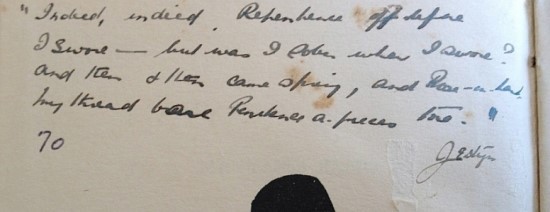 "Indeed, indeed, Repentance oft before
I swore — but was I sober when I swore?
And then & then came Spring, and Rose-in-hand
my thread bare Penitence a-pieces tore."
70